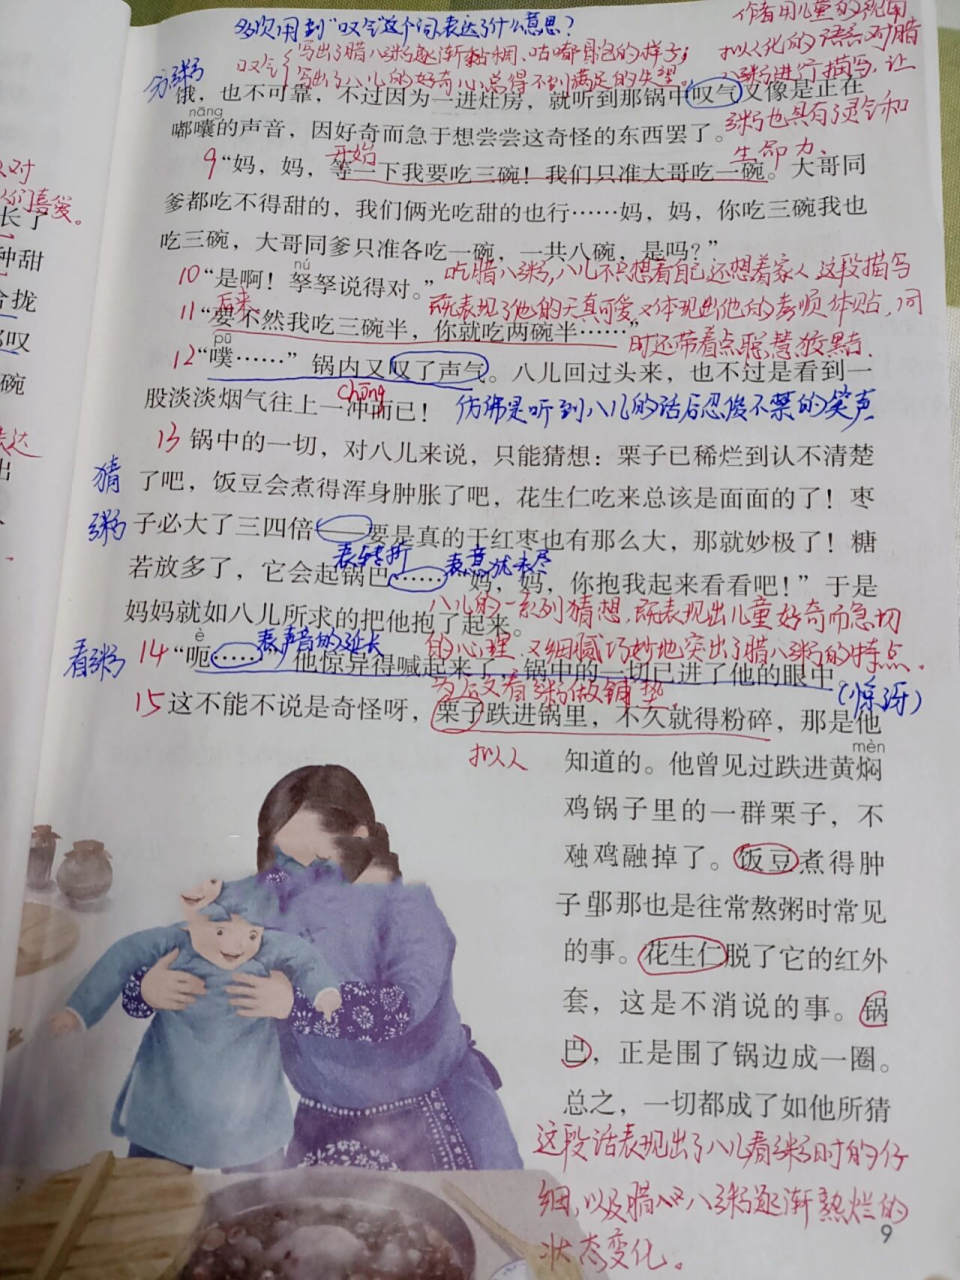 多次用到"叹气"这个词表达了什么意思？
作者用儿童的视角
拟人化的语言对腊
八粥进行描写，让
粥也具有了灵气和
生命力、
叹气{写出了腊八粥逐渐黏稠、咕嘟冒泡的样子；
写出了八儿的好奇心总得不到满足的失望
分粥
饿，也不可靠，不过因为一进灶房，就听到那锅中叹气又像是正在
nāng
嘟囔的声音，因好奇而急于想尝尝这奇怪的东西罢了。
开始
9 “妈，妈，等一下我要吃三碗！我们只准大哥吃一碗。大哥同
爹都吃不得甜的，我们俩光吃甜的也行……妈，妈，你吃三碗我也
吃三碗，大哥同爹只准各吃一碗，一共八碗，是吗？”
nú
10 “是啊！孥孥说得对。”
吃腊八粥，八儿不只想着自己还想着家人这段描写
既表现了他的天真可爱，又体现出他的孝顺体贴，同
时还带着点聪慧狡黠．
后来
11 “要不然我吃三碗半，你就吃两碗半……”
pū
12 “噗……”锅内又叹了声气。八儿回过头来，也不过是看到一
chōng
股淡淡烟气往上一冲而已！
仿佛是听到八儿的话后忍俊不禁的笑声
13 锅中的一切，对八儿来说，只能猜想：栗子已稀烂到认不清楚
猜
粥
了吧，饭豆会煮得浑身肿胀了吧，花生仁吃来总该是面面的了！枣
子必大了三四倍——要是真的干红枣也有那么大，那就妙极了！糖
表转折 表意犹未尽
若放多了，它会起锅巴……“妈，妈，你抱我起来看看吧！”于是
妈妈就如八儿所求的把他抱了起来。
八儿的一系列猜想，既表现出儿童好奇而急切
的心理，又细腻巧妙地突出了腊八粥的特点．
为后文看粥做铺垫．
看粥
è
表声音的延长
14 “呃……”他惊异得喊起来了，锅中的一切已进了他的眼中。
(惊讶)
15 这不能不说是奇怪呀，栗子跌进锅里，不久就得粉碎，那是他
拟人
mèn
知道的。他曾见过跌进黄焖
鸡锅子里的一群栗子，不
鸡融掉了。饭豆煮得肿
那也是往常熬粥时常见
的事。花生仁脱了它的红外
套，这是不消说的事。锅
巴，正是围了锅边成一圈。
总之，一切都成了如他所猜
这段话表现出了八儿看粥时的仔
细，以及腊八粥逐渐熟烂的
状态变化。
9
对
们喜爱。
长了
种甜
拢
叹
碗
达
出